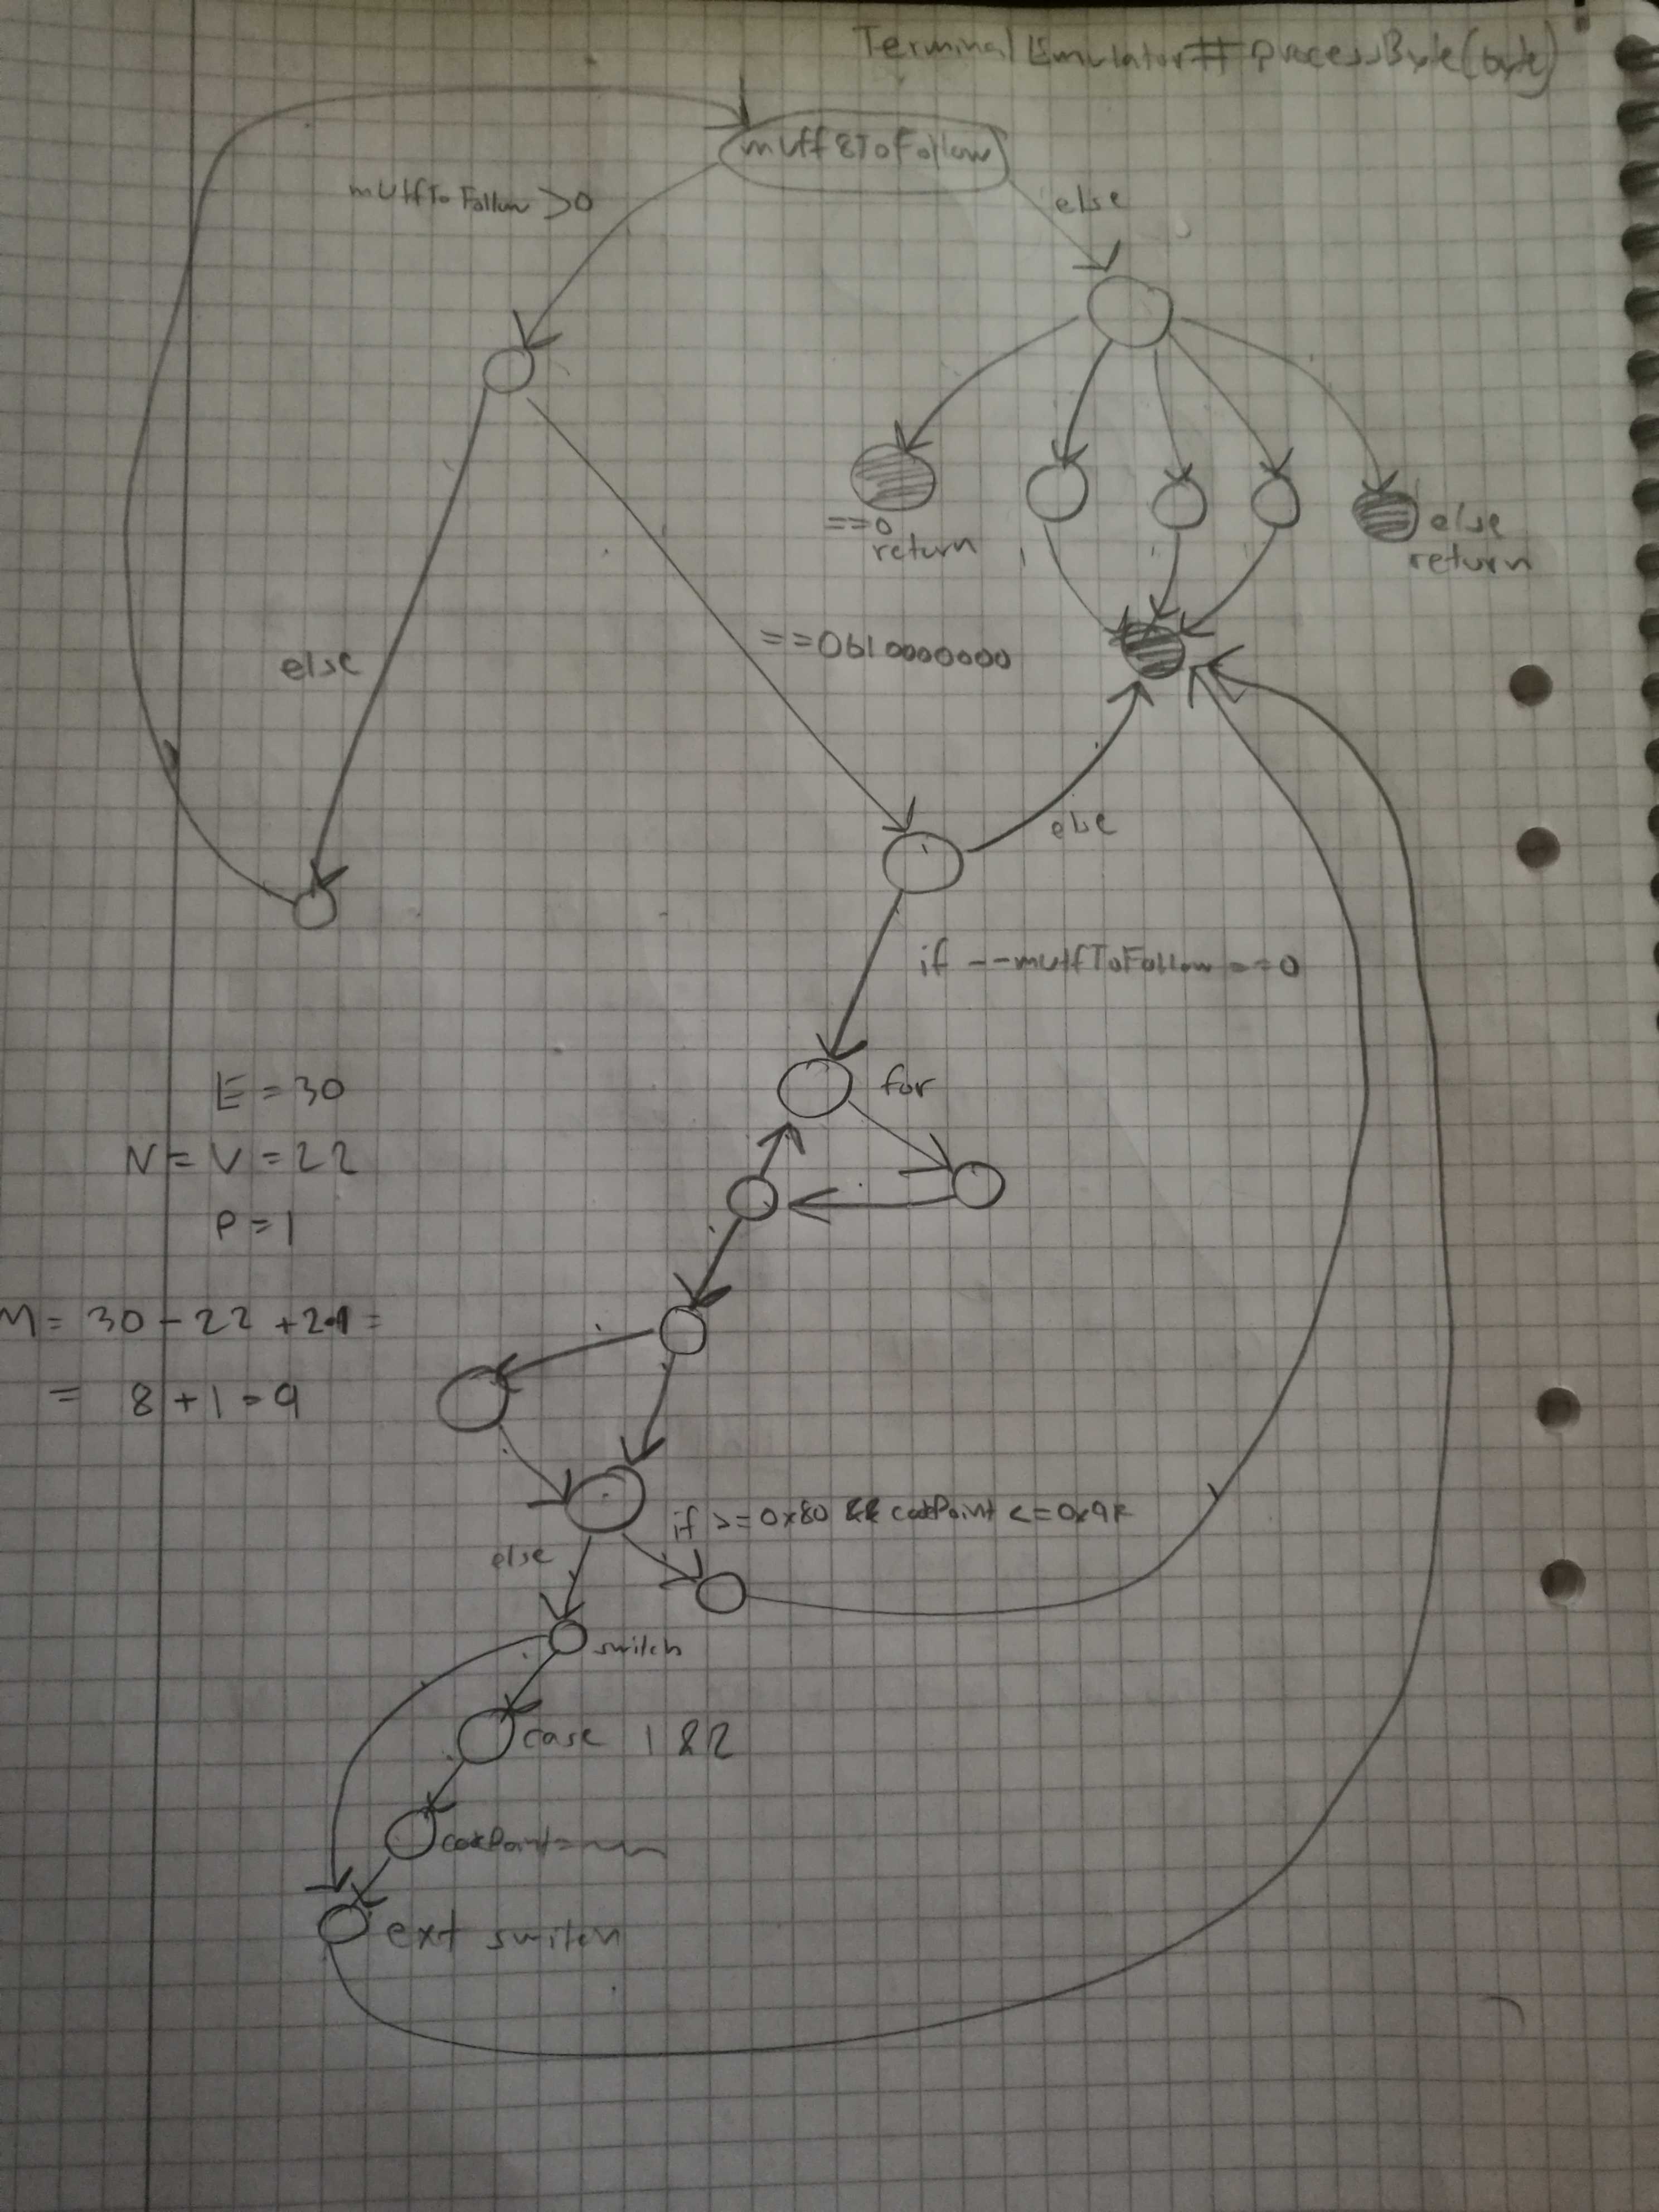 TerminalEmulator#processByte(byte)
mUtf8ToFollow
mUtfToFollow >0
else
==0
return
else
return
==0b10000000
else
else
if --mUtfToFollow ==0
for
E = 30
N = V = 22
P = 1
M = 30 - 22 + 2·1 =
= 8 + 1 = 9
if >= 0x80 && codePoint <= 0x9F
else
switch
case 1 & 2
codePoint =
ext switch